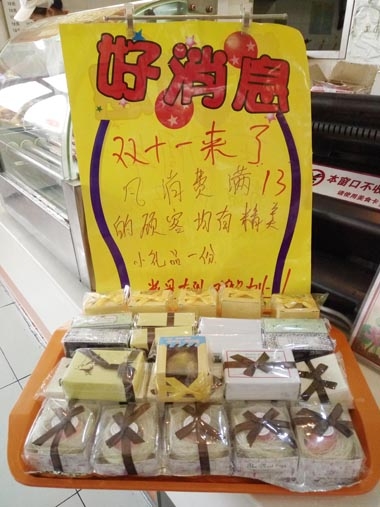 好消息
双十一来了
凡消费满13
的顾客均有精美
小礼品一份
本窗口不收
请使用美食卡